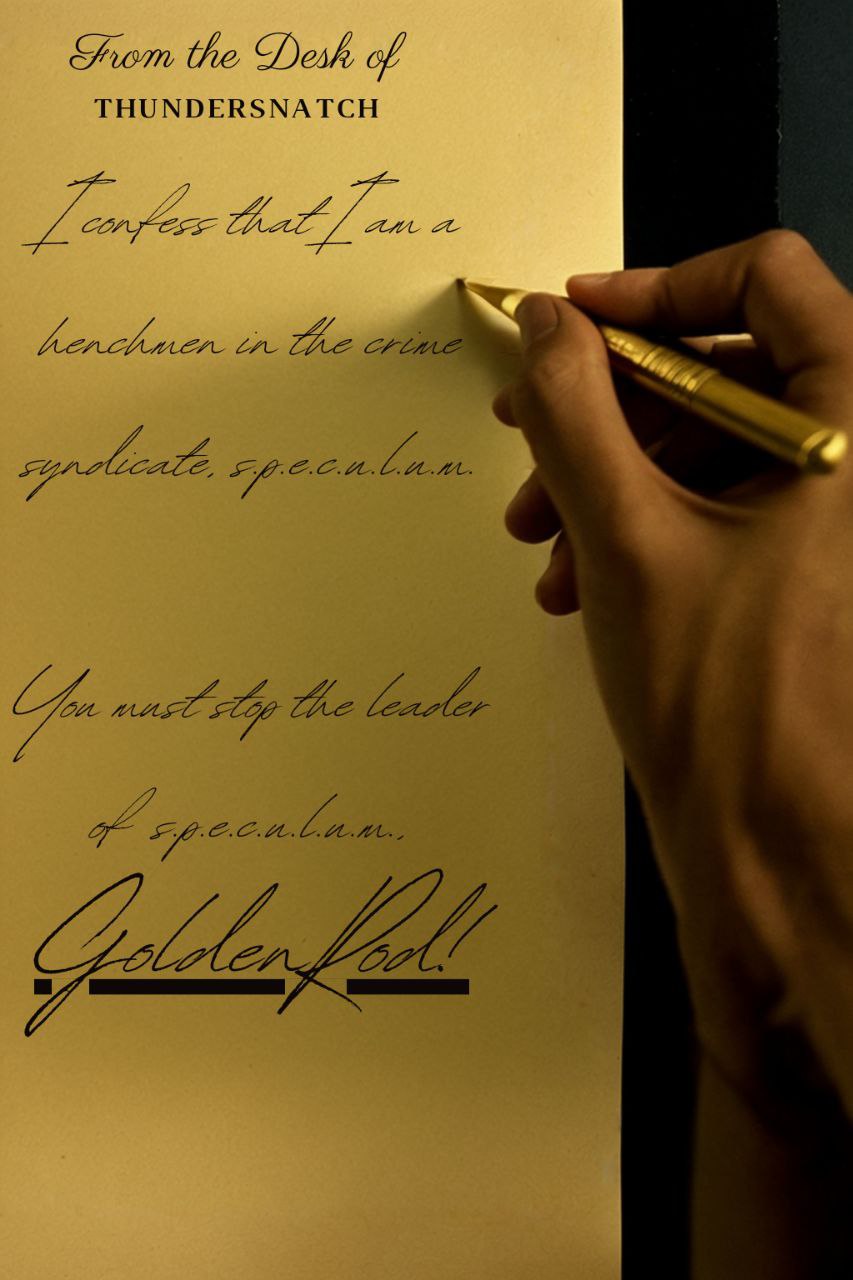 From the Desk of
THUNDERSNATCH
I confess that I am a
henchmen in the crime
syndicate, s.p.e.c.u.l.u.m.
You must stop the leader
of s.p.e.c.u.l.u.m.,
GoldenRod!